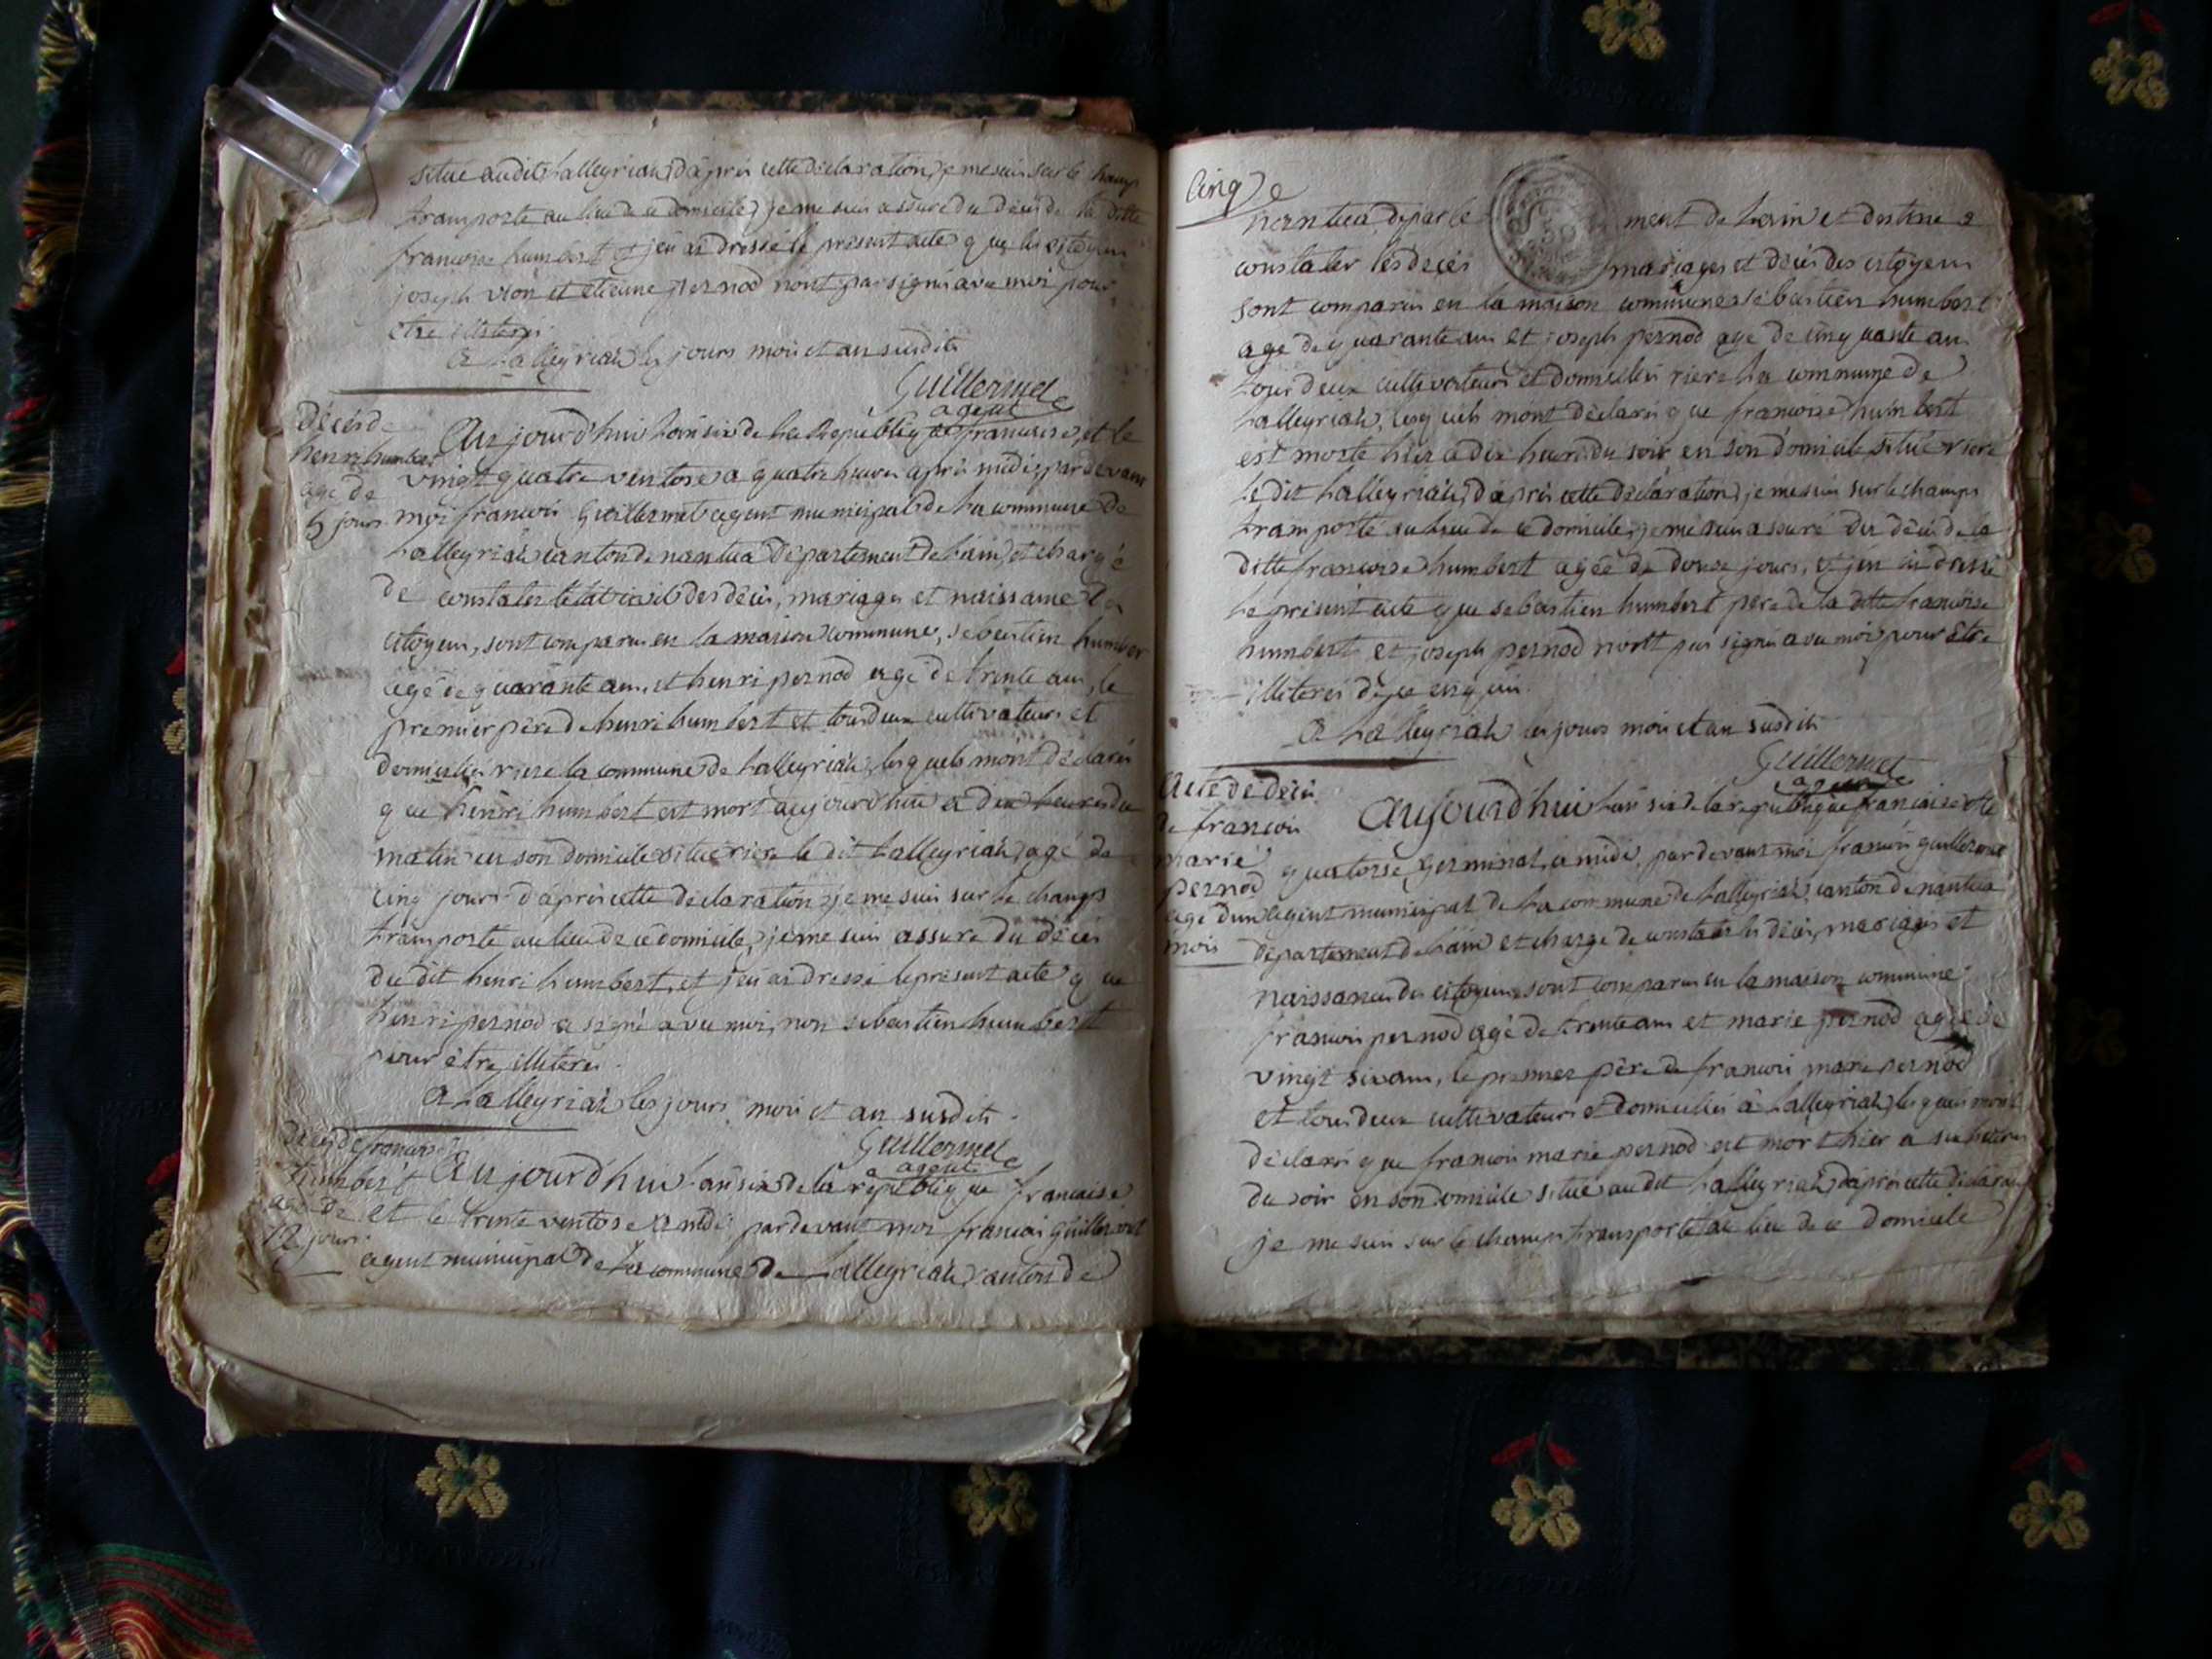 situé audit Lalleyriat, d'après cette déclaration, je me suis sur le champs
transporté au lieu de ce domicile, je me suis assuré du décès de la ditte
françoise humbert et j'en ai dressé le présent acte que les citoyens
joseph vion et etienne pernod n'ont pas signés avec moi pour
etre illiterés.
a Lalleyriat les jours mois et an susdits
Guillermet
agent
Décés de
henri humbert
agé de
5 jours
Aujourd'hui L'an six de La République francaise, et le
vingt quatre ventose a quatre heures après midi, par devant
moi francois Guillermet agent municipal de La commune de
Lalleyriat canton de nantua Département de L'ain, et chargé
de constater les décès, mariages et naissance des
citoyens, sont comparus en la maison commune, sebastien humbert
agé de quarante ans et henri pernod agé de trente ans, le
premier père de henri humbert et tous deux cultivateurs et
domiciliés riere la commune de Lalleyriat, lesquels m'ont déclarés
que henri humbert est mort aujourd'hui a dix heures du
matin en son domicile situé riere le dit Lalleyriat, agé de
cinq jours d'après cette déclaration je me suis sur le champs
transporté au lieu de ce domicile, je me suis assuré du décès
du dit henri humbert, et j'en ai dressé le présent acte que
henri pernod a signé avec moi, non sebastien humbert
pour être illiterés.
a Lalleyriat les jours mois et an susdits.
Guillermet
agent
Décés de francoise
humbert
agé de
12 jours
Aujourd'hui L'an six de la république francaise
et le trente ventose a midi par devant moi francois guillermet
agent municipal de La commune de Lalleyriat canton de
Cinq
nantua, département de Lain et destiné a
constater les décès mariages et décés des citoyens
sont comparus en la maison commune sébastien humbert
agé de quarante ans et joseph pernod agé de cinquante ans
tous deux cultivateurs et domiciliés riere La commune de
Lalleyriat, lesquels m'ont déclarés que francoise humbert
est morte hier a dix heures du soir en son domicile situé riere
le dit Lalleyriat, d'après cette déclaration, je me suis sur le champs
transporté au lieu de ce domicile, je me suis assuré du décès de la
ditte francoise humbert agée de douze jours, et j'en ai dressé
le présent acte que sebastien humbert pere de la ditte francoise
humbert et joseph pernod n'ont pas signés avec moi pour être
illiterés de ce enquis.
a Lalleyriat les jours mois et an susdits
Guillermet
agent
Acte de décès
de francois
marie
pernod
agé d'un
mois
Aujourd'hui L'an six de la république francaise et le
quatorse germinal, a midi, par devant moi francois guillermet
agent municipal de La commune de Lalleyriat, canton de nantua
département de L'ain et chargé de constater les décès, mariages et
naissances des citoyens, sont comparus en la maison commune
francois pernod agé de trente ans et marie pernod agée de
vingt six ans, le premier père de francois marie pernod
et tous deux cultivateurs et domiciliés à Lalleyriat, lesquels m'ont
déclarés que francois marie pernod est mort hier a six heures
du soir en son domicile situé au dit Lalleyriat, d'après cette déclaration
je me suis sur le champs transporté au lieu de ce domicile